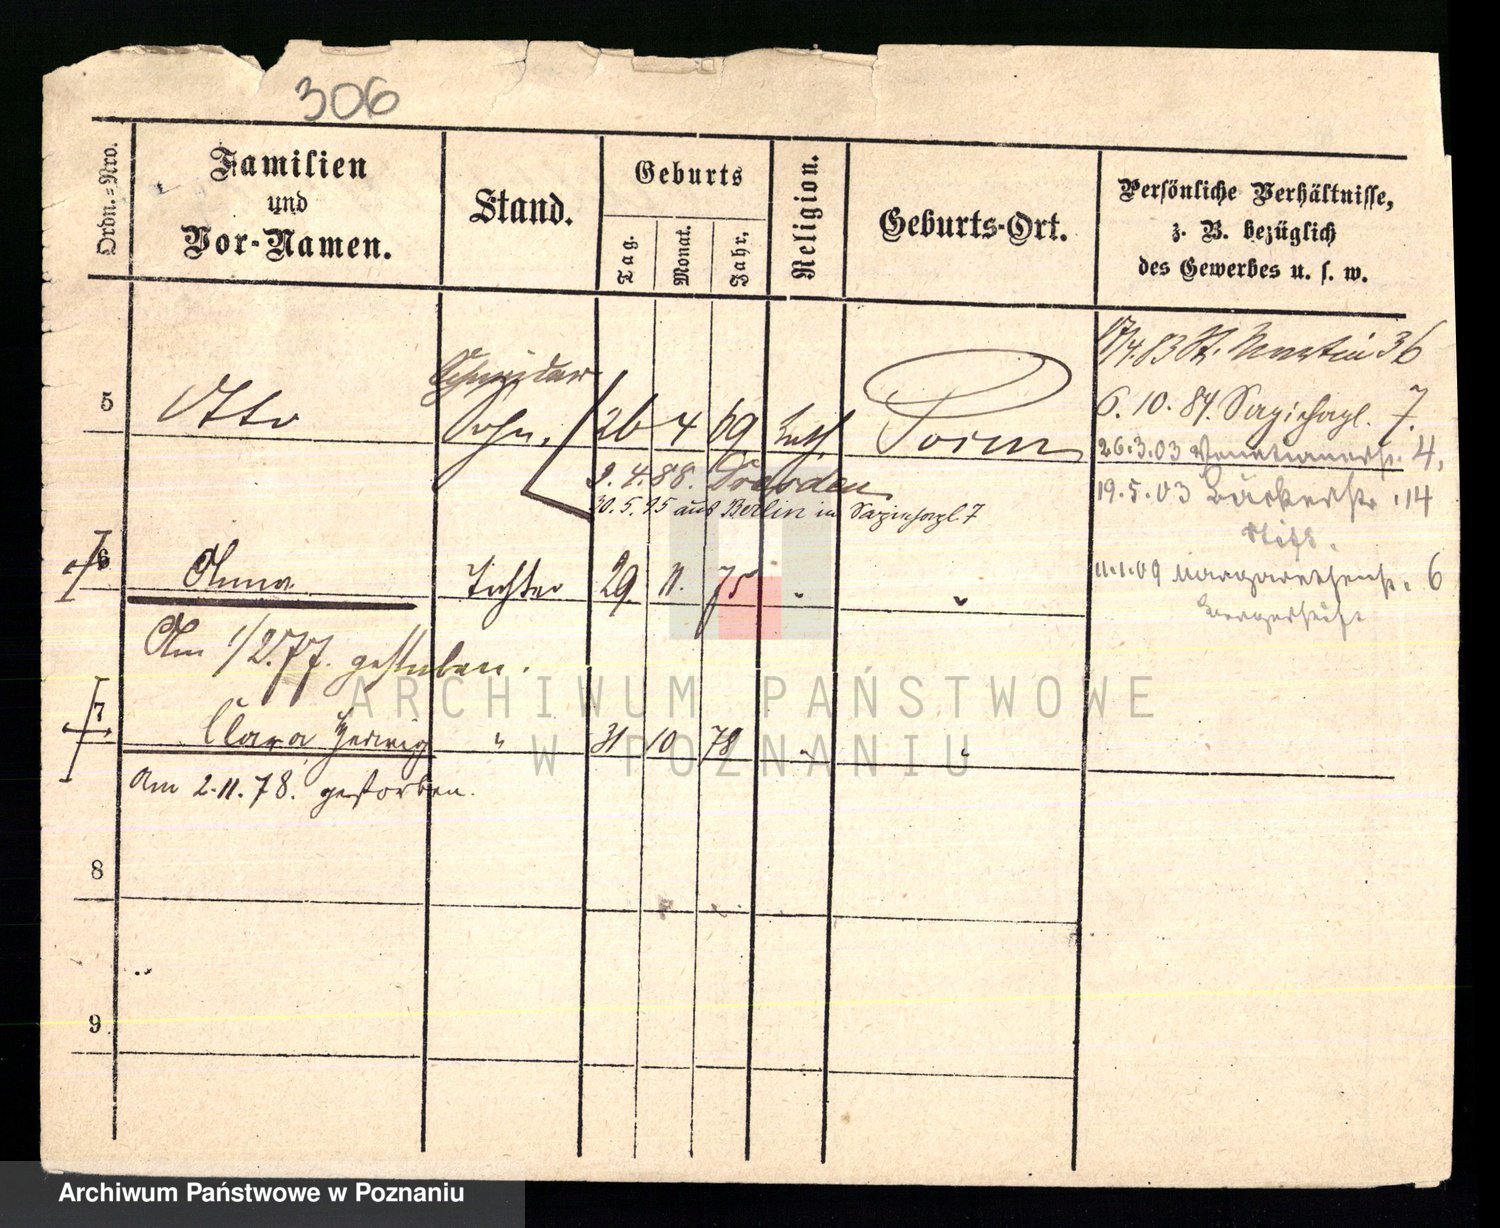 306
Ordn.=Nro.
Familien
und
Vor-Namen.
Stand.
Geburts
Tag.
Monat.
Jahr.
Religion.
Geburts-Ort.
Persönliche Verhältnisse,
z. B. bezüglich
des Gewerbes u. s. w.
17/4.83 St. Martin 36
Schneider
5 Otto Sohn. 26 4 69 Luth. Posen
6. 10. 84. Sapiehapl. 7.
26.3.03 4.
2.4.88. Dresden
19.5.03 Bäckerstr. 14
30.5.95 aus Berlin in Sapiehapl 7
6 Anna Tochter 29 11. 75 " "
11.1.09 Margarethenstr. 6
Am 1/2.77. gestorben.
7 Clara Hedwig " 31 10 78 " "
Am 2.11.78. gestorben.
8
9
ARCHIWUM PAŃSTWOWE
W POZNANIU
Archiwum Państwowe w Poznaniu